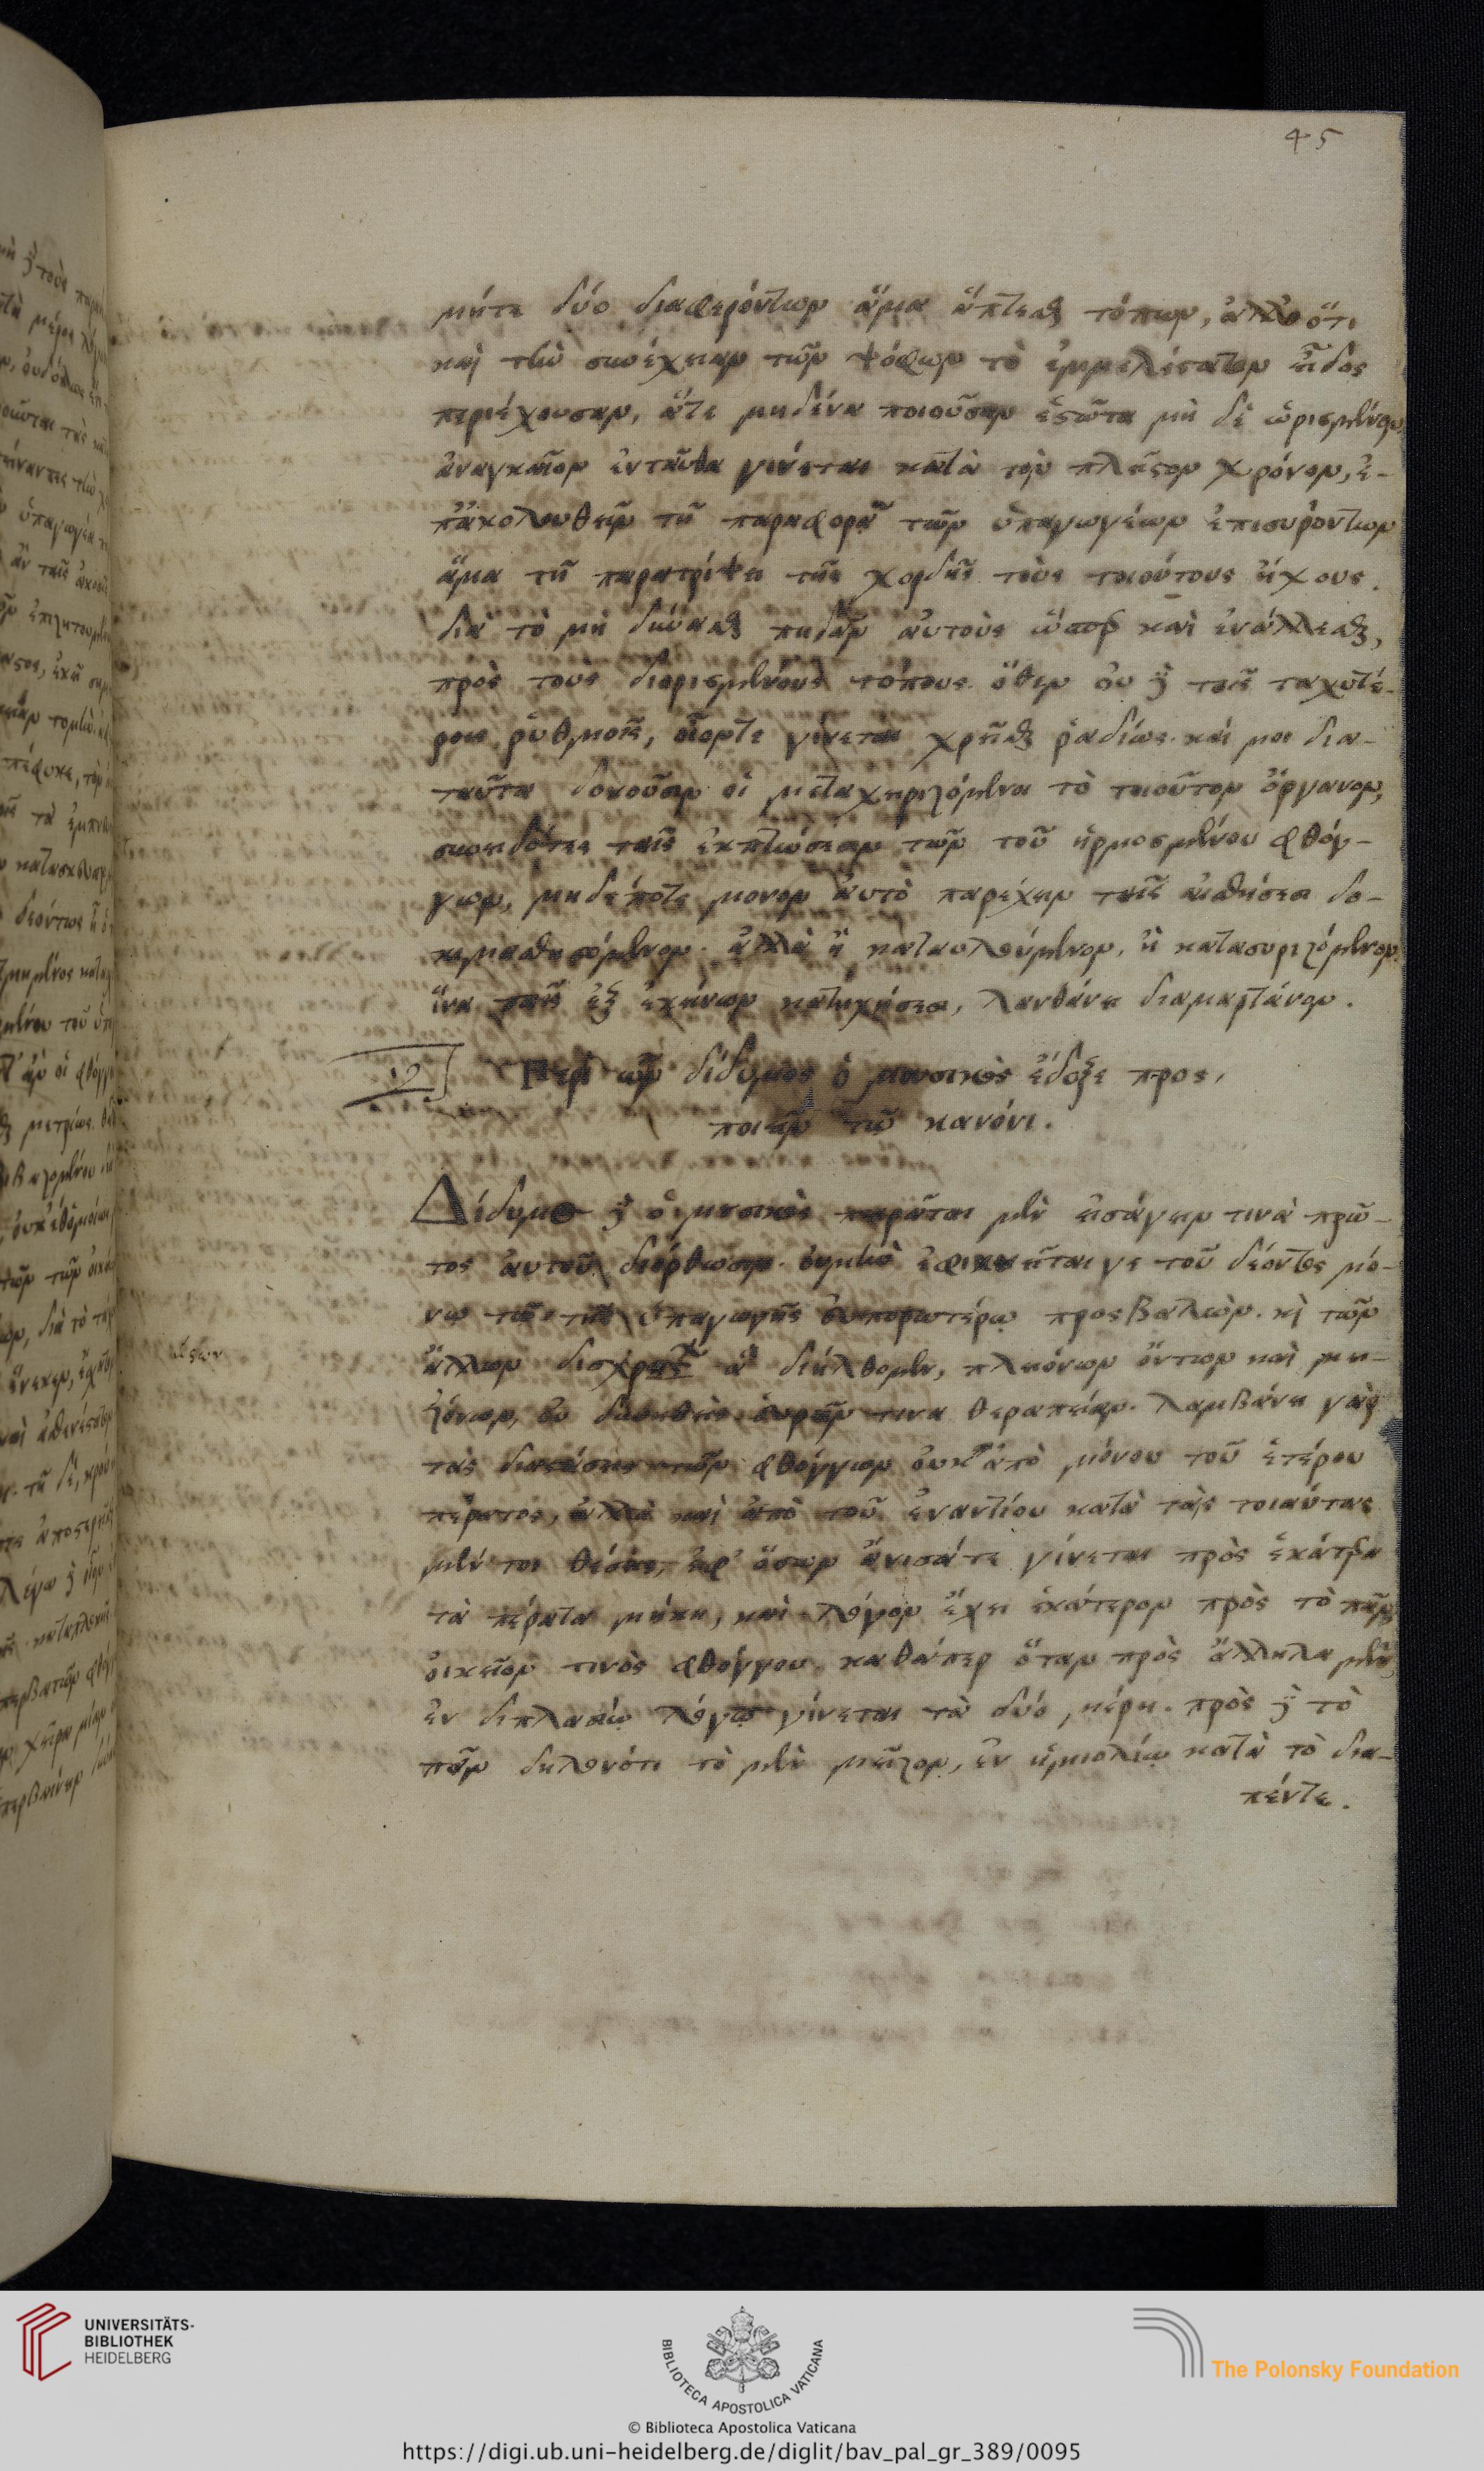 45
μήτε δύο διαφερόντων ἅμα ἅπτεσθαι τόπων, ἀλλὰ ὅτι
καὶ τὴν συνέχειαν τῶν ψόφων τὸ ἐμμελέστατον εἶδος
περιέχουσαν, ἅτε μηδένα ποιοῦσαν ἑστῶτα μὴ δὲ ὡρισμένον
ἀναγκαῖον ἐνταῦθα γίνεται κατὰ τὸν πλεῖστον χρόνον, ἐ-
πακολουθεῖν τῇ παραφορᾷ τῶν ὑπαγωγέων ἐπισυρόντων
ἅμα τῇ παρατρίψει τῆς χορδῆς τοὺς τοιούτους ἤχους.
διὰ τὸ μὴ δύνασθαι πηδᾶν αὐτοὺς ὥσπερ καὶ ἐνάλλεσθαι,
πρὸς τοὺς διορισμένους τόπους. ὅθεν οὐ δὲ τοῖς ταχυτέ-
ροις ῥυθμοῖς, οἷόντε γίνεται χρῆσθαι ῥαδίως. καί μοι δια-
ταῦτα δοκοῦσιν οἱ μεταχειριζόμενοι τὸ τοιοῦτον ὄργανον,
συνειδότες ταῖς ἐκπτώσεσιν τῶν τοῦ ἡρμοσμένου φθόγ-
γων, μηδέποτε μονον αὐτὸ παρέχειν ταῖς αἰσθήσεσι δο-
κιμασθησόμενον. ἀλλὰ ἢ καταυλούμενον, ἢ κατασυριζόμενον.
ἵνα ταῖς ἐξ ἐκείνων κατηχήσεσι, λανθάνει διαμαρτάνον.
Περὶ ὧν δίδυμος ὁ μουσικὸς ἔδοξε προς,
ποιεῖν τῷ κανόνι.
Δίδυμος δὲ ὁ μουσικὸς πειρᾶται μὲν εἰσάγειν τινὰ πρῶ-
τος αὐτοῦ διόρθωσιν. οὐ μὴν ἐφικνεῖται γε τοῦ δέοντος μό-
νῳ τῷ τῆς ὑπαγωγῆς εὐπορωτέρῳ προσβαλών. καὶ τῶν
ἄλλων δυσχρηστιῶν ἃς διήλθομεν, πλειόνων ὄντων καὶ μει-
ζόνων, οὐ δυνηθεὶς εὑρεῖν τινα θεραπείαν. λαμβάνει γὰρ
τὰς διαστάσεις τῶν φθόγγων οὐκ ἀπὸ μόνου τοῦ ἑτέρου
πέρατος, ἀλλὰ καὶ ἀπὸ τοῦ ἐναντίου κατὰ τὰς τοιαύτας
μέν τοι θέσεις, ἐφ' ὅσων ἄνισά τε γίνεται πρὸς ἑκάτερα
τὰ πέρατα μήκη, καὶ λόγον ἔχει ἑκάτερον πρὸς τὸ πᾶν
οἰκεῖον τινὸς φθόγγου. καθάπερ ὅταν πρὸς ἄλληλα μὲν
ἐν διπλασίῳ λόγῳ γίνεται τὰ δύο μέρη. πρὸς δὲ τὸ
πᾶν δηλονότι τὸ μὲν μεῖζον, ἐν ἡμιολίῳ κατὰ τὸ δια-
πέντε.
UNIVERSITÄTS-
BIBLIOTHEK
HEIDELBERG
BIBLIOTECA APOSTOLICA VATICANA
The Polonsky Foundation
© Biblioteca Apostolica Vaticana
https://digi.ub.uni-heidelberg.de/diglit/bav_pal_gr_389/0095